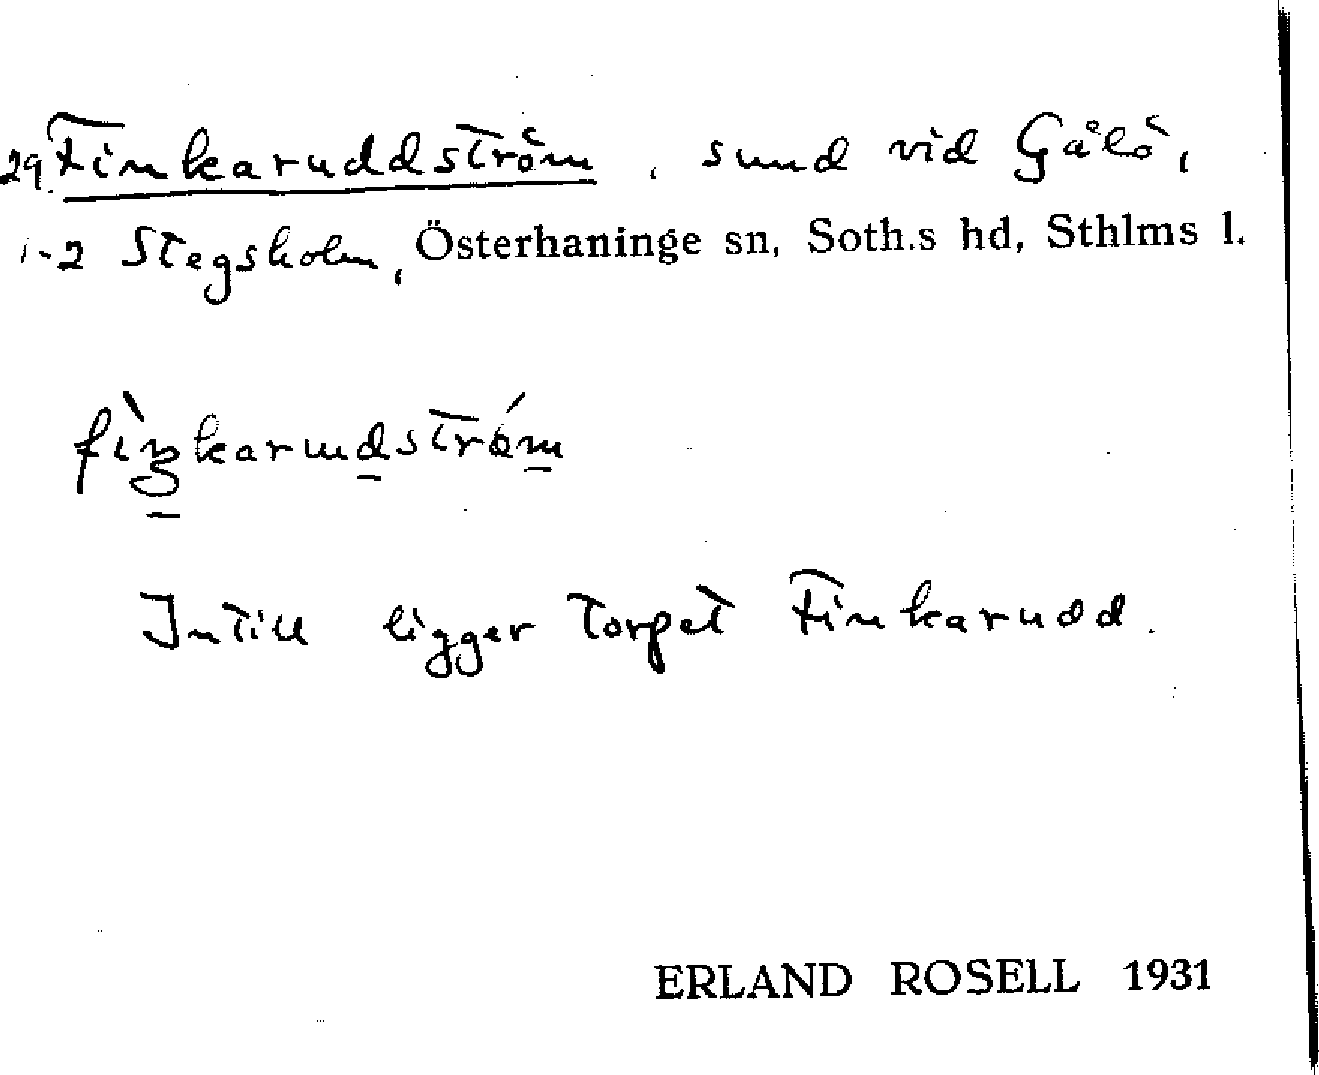 29. Finkaruddström, sund vid Gålö,
1-2 Stegsholm, Österhaninge sn, Soth.s hd, Sthlms l.
Intill ligger torpet Finkarudd.
ERLAND ROSELL 1931